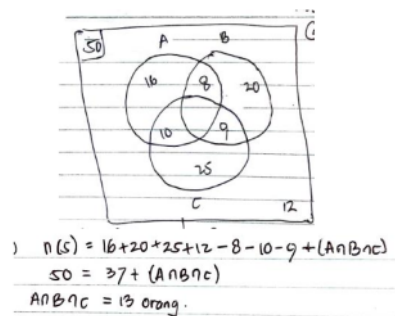 50
A B
16 8 20
10 9
25
C 12
) n(S) = 16+20+25+12-8-10-9+(A∩B∩C)
50 = 37+(A∩B∩C)
A∩B∩C = 13 orang.